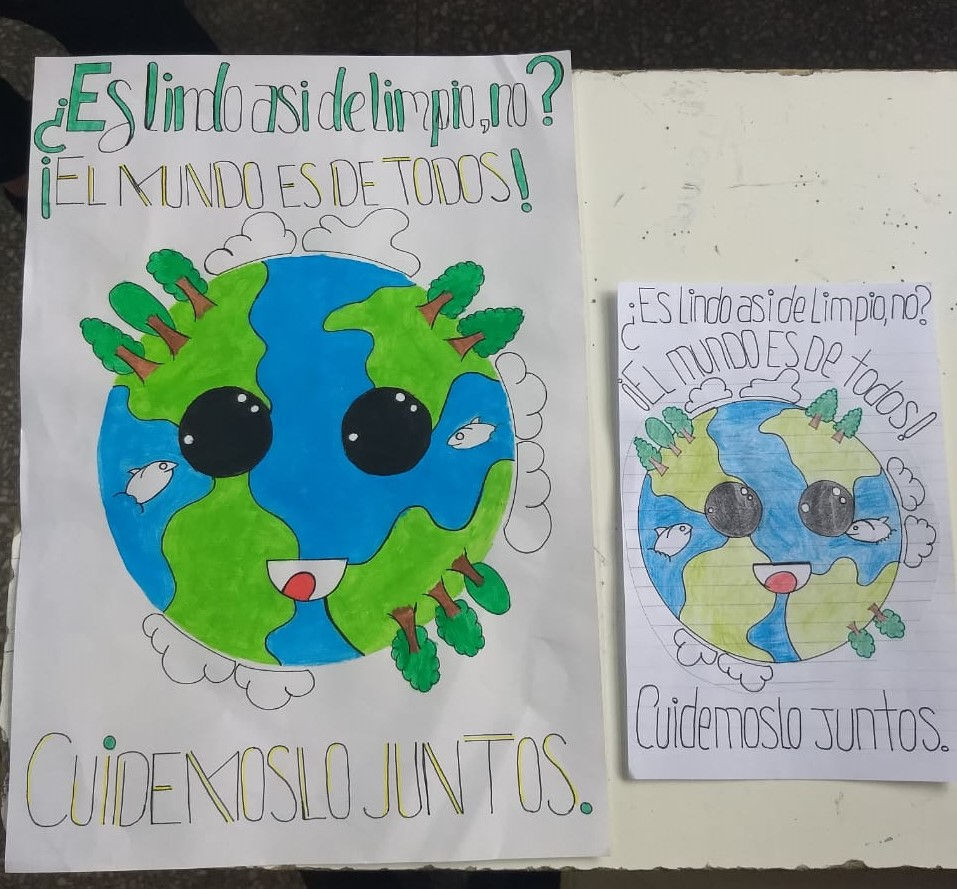 ¿Es lindo asi de limpio, no?
¡EL MUNDO ES DE TODOS!
CUiDEMOSLO JUNTOS.
¿Es lindo asi de Limpio, no?
¡EL MUNDO ES DE todos!
Cuidemoslo juntos.